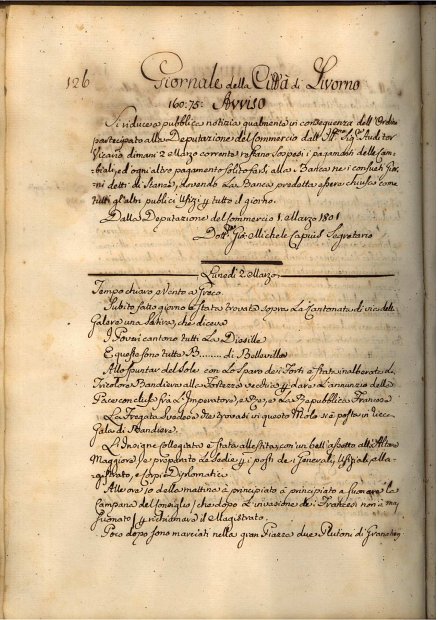 126 Giornale della Città di Livorno
160:75: Avviso
Si riduce a pubblica notizia qualmente in consequenza dell'Ordine
partecipato alla Deputazione del Commercio dall'Ill.mo Sig.re Auditor
Vicario, dimani 2 Marzo corrente restano sospesi i pagamenti delle Cam-
biali, ed ogni altro pagamento solito farsi alla Banca ne i consueti Gior-
ni detti di Stanza, dovendo La Banca predetta essere chiusa come
tutti gl'altri publici Ufizj p tutto il giorno.
Dalla Deputazione del Commercio 1. Marzo 1801
Dott.re Gio: Michele Segretario
Lunedì 2 Marzo
Tempo chiaro e Vento a Greco
Subito fatto giorno è stata trovata sopra La Cantonata di via delle
Galere una Satira, che diceva
I Poveri cantono tutti La Diesille
E queste sono tutte B........ di Belleville
Allo spuntar del Sole con Lo sparo dei Forti è stata inalberata la
Tricolore Bandiera alla Fortezza vecchia p dare L'annunzio della
Pace conclusa fra L'Imperatore, e Re, e La Repubblica Franese
La Fregata Svedese che trovasi in questo Molo si è posta in ricca
Gala di Bandiere.
L'Insigne Collegiata è stata allestita, con un bell'apetto all'Altare
Maggiore, e preparato Le Sedie p i posti de i Generali, Ufiziali, alla-
gistrato, e Corpi Dipromatici
Alle ore 10 della mattina è principiato a principiato a suonare la
Campana del Consiglio (che dopo L'invasione dei Francesi non è mai
suonato) p richiamare il Magistrato.
Poco dopo sono marciati nella gran Piazza due Plutoni di Granatieri